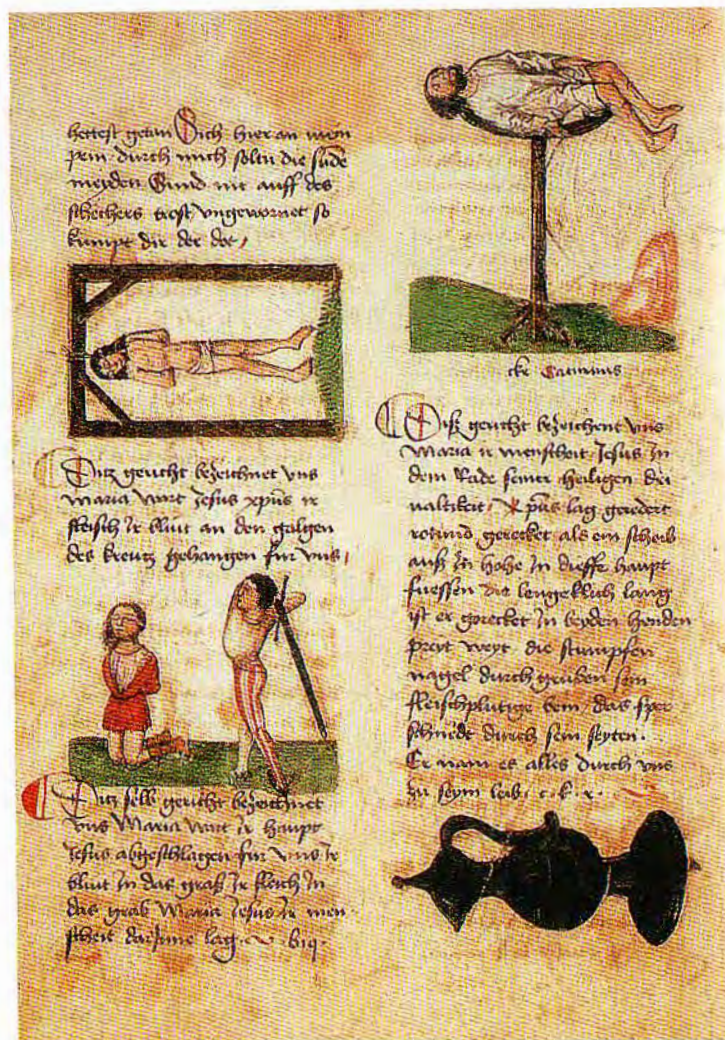 hettest getan Dich hier an mein
pein durch mich soltu die sünd
meyden Vnnd nit auff des
schechers trost vngewornet so
kumpt dir der dot
Ditz gericht bezeichnet vns
maria wart Jesus xpus ir
fleisch Ir bluit an den galgen
des kreutz gehangen fur vns
Ditz selb gericht bezeichnet
vns Maria wart ir haupt
Jesus abgeschlagen fur vns Ir
bluit In das graß Ir fleich In
das grab Maria Jesus Ir men
scheit darJnne lag
Diß gericht bezeichent vns
Maria ir menscheit Jesus In
dem Rade seiner heiligen dri
ualtikeit xpus lag geredert
rotund gerecket als ein scheib
auß In hohe In dieffe haupt
fuessen die lengeklich lang
ist er gerecket In beyden henden
preyt weyt die stumpfen
nagel durch gruben sein
fleischplutige bein das sper
schniedt durch sein seyten
Er nam es alles durch vns
zu seym leib . c . k . x .